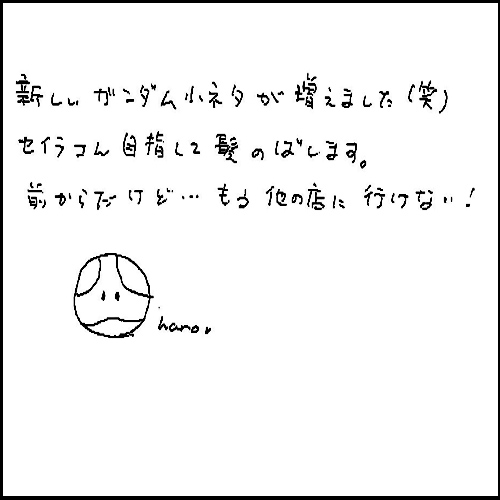 新しいガンダム小ネタが増えました(笑)
セイラさん目指して髪のばします。
前からだけど…もう他の店に行けない!
haro.